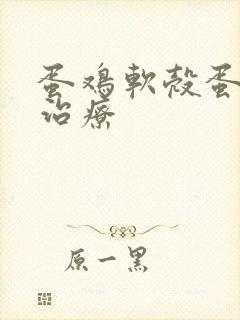 蛋鸡軟殼蛋
治療
原一黑